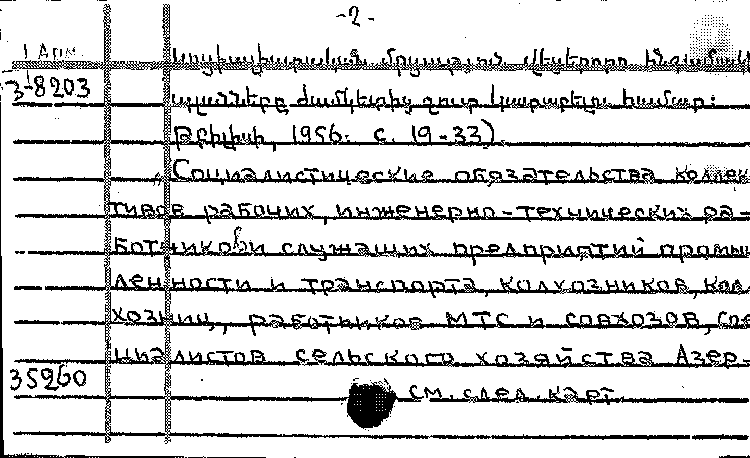 -2-
1 Арм
3-8203
սոցիալիստական մրցության
պլանները ժամկետից շուտ կատարելու համար:
Թբիլիսի, 1956. с. 19-33)
„Социалистические обязательства коллек
тивов рабочих, инженерно-технических ра-
ботников и служащих предприятий промыш
ленности и транспорта, колхозников, кол
хозниц, работников МТС и совхозов, спе
циалистов сельского хозяйства Азер-
35260
см. след. карт.